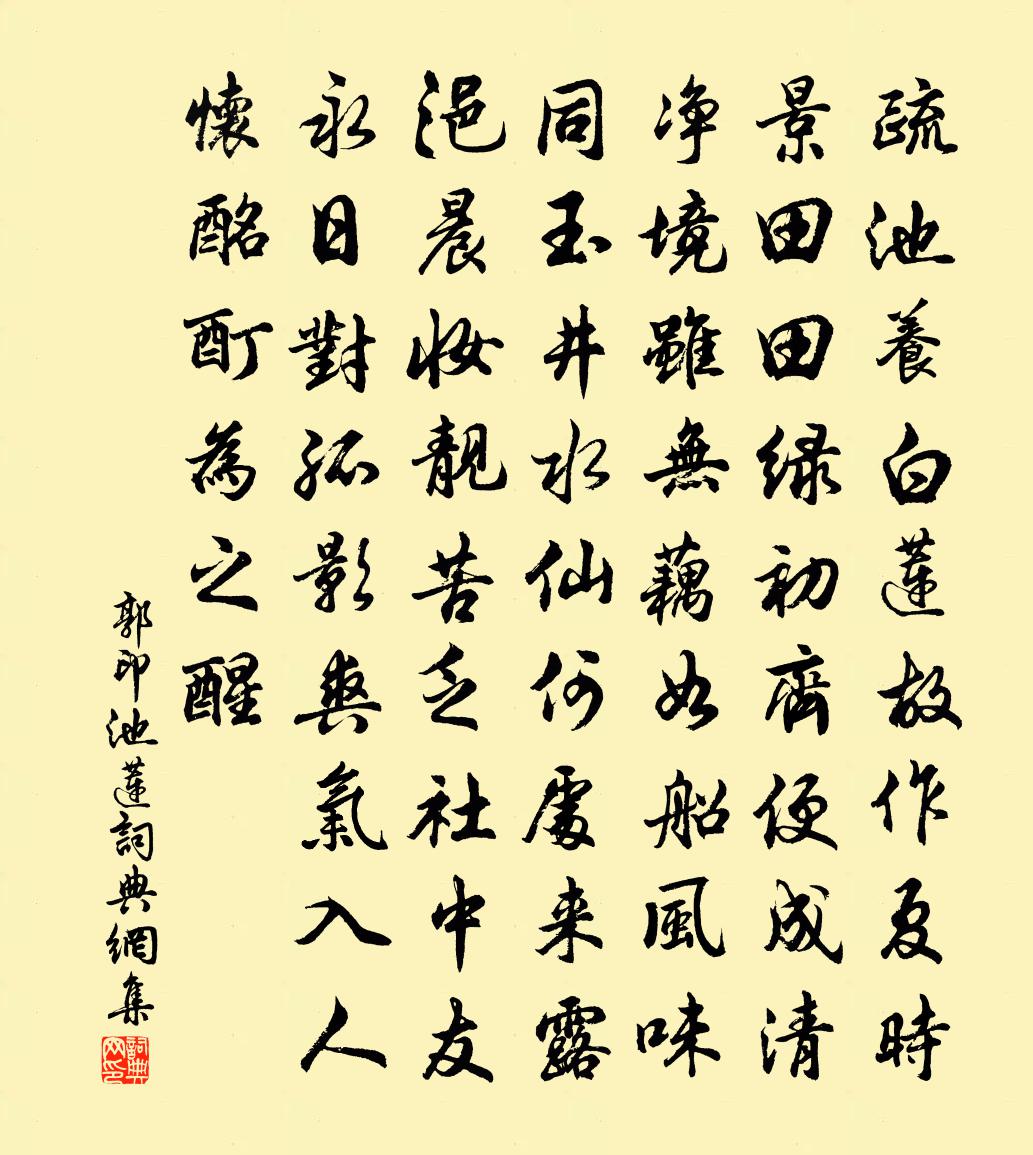 疏池養白蓮故作夏時
景田田緑初齊便成清
淨境雖無藕如船風味
同玉井水仙何處来露
浥晨妝靚苦乏社中友
永日對孤影爽氣入人
懷酩酊為之醒
郭印池蓮詞典網集
詞典網印